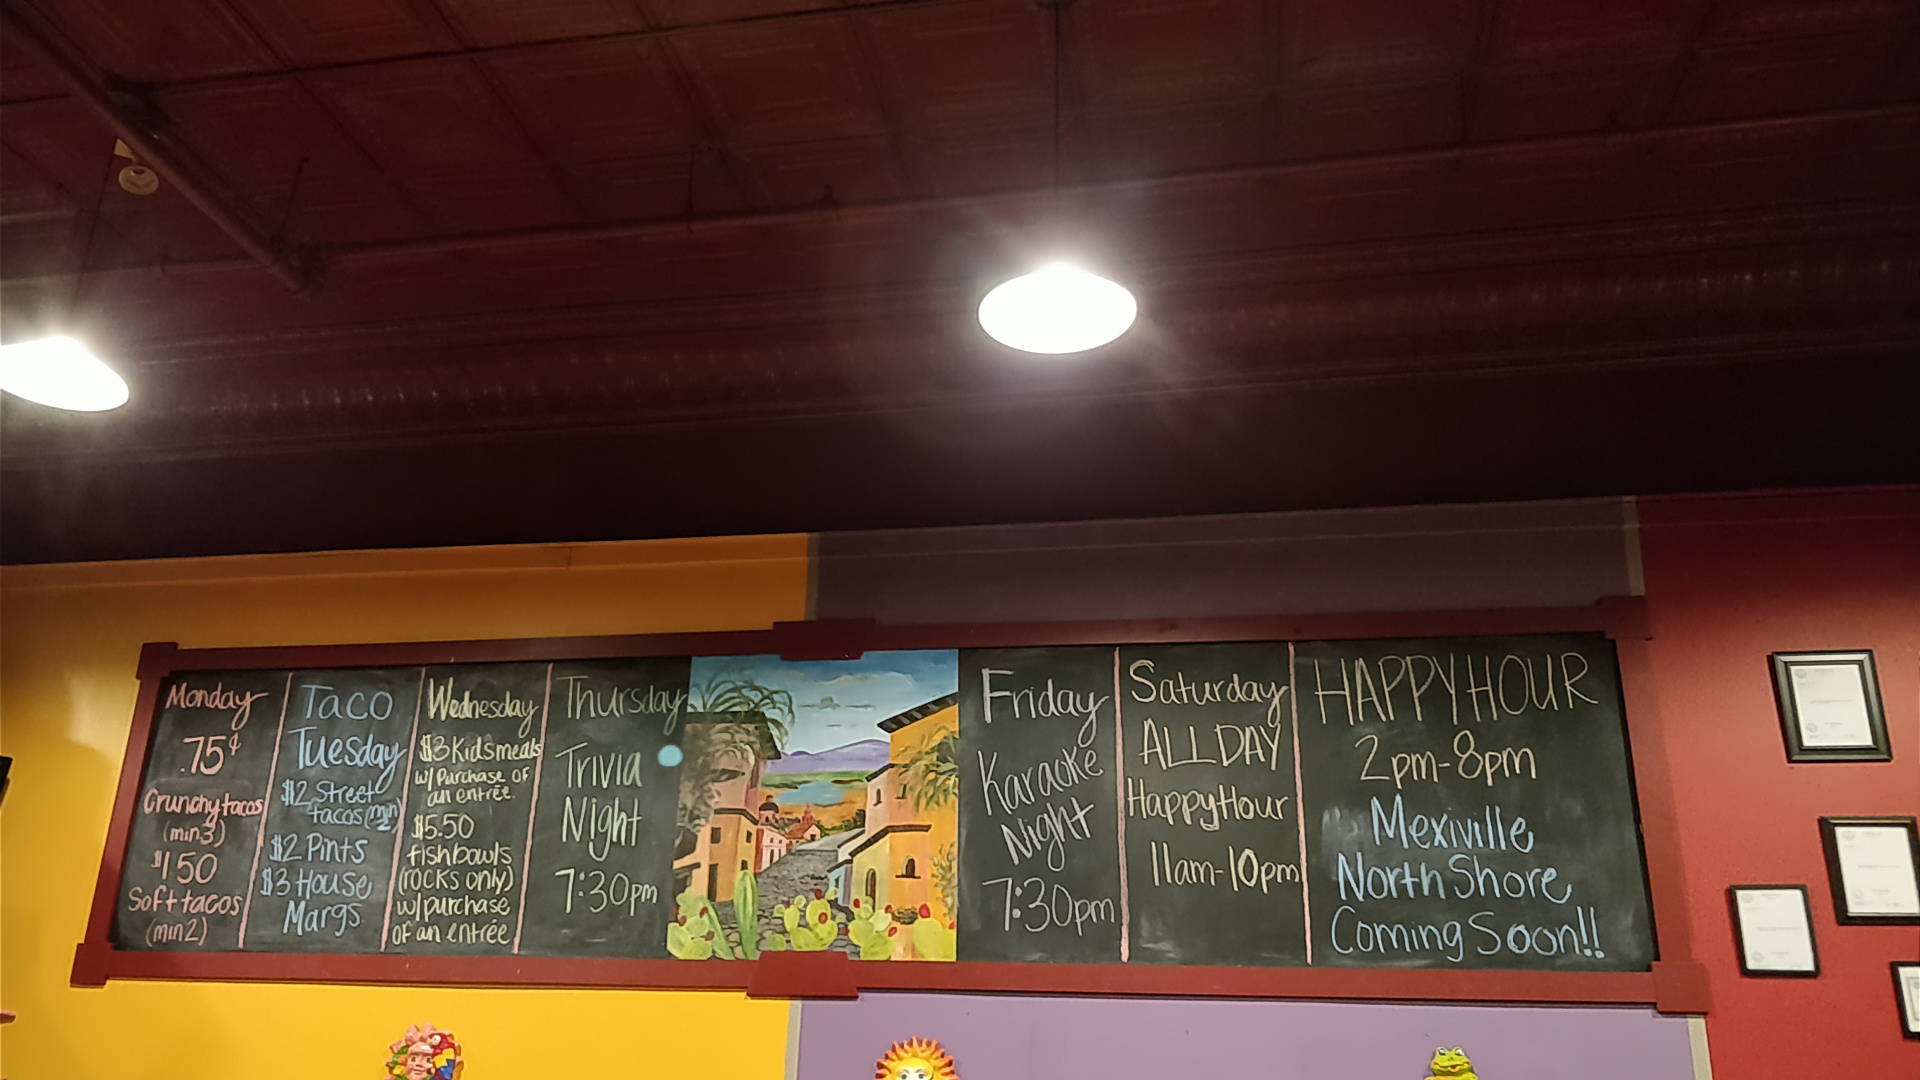 Monday
.75¢
Crunchy tacos
(min 3)
$1.50
Soft tacos
(min 2)
Taco
Tuesday
$2 Street
tacos (min 2)
$2 Pints
$3 House
Margs
Wednesday
$3 Kids meals
w/ Purchase of
an entrée.
$5.50
fishbowls
(rocks only)
w/ purchase
of an entrée
Thursday
Trivia
Night
7:30pm
Friday
Karaoke
Night
7:30pm
Saturday
ALL DAY
Happy Hour
11am-10pm
HAPPY HOUR
2pm-8pm
Mexiville
North Shore
Coming Soon!!